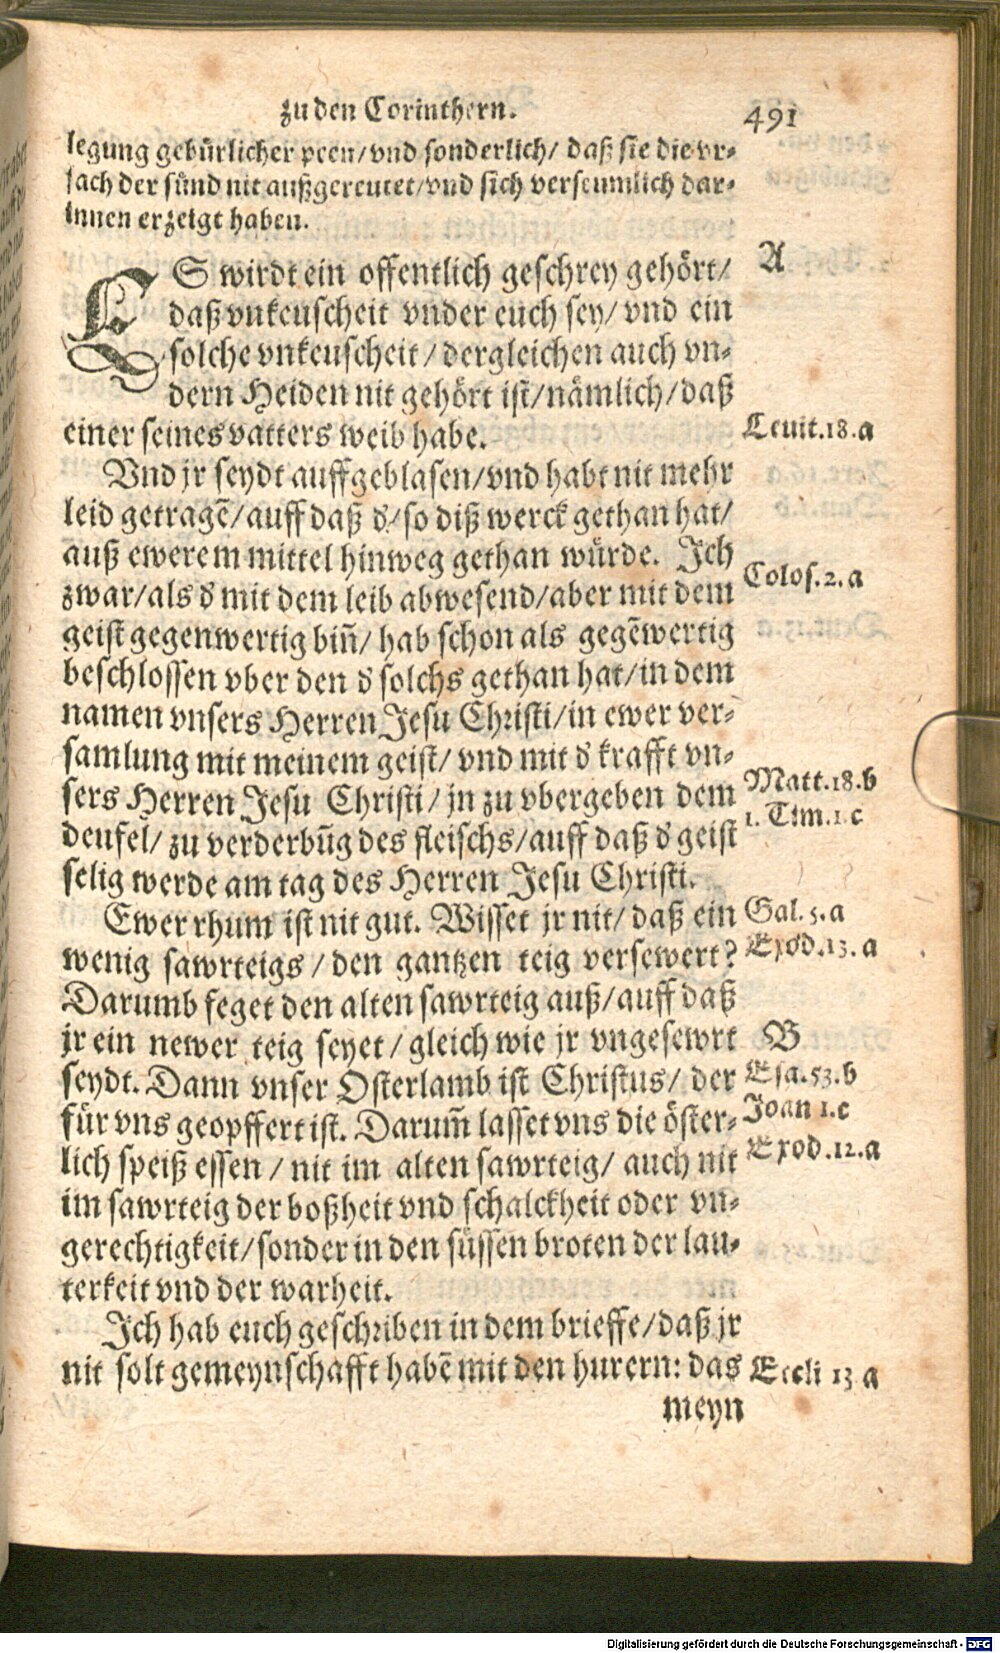 zu den Corinthern. 491
legung gebürlicher peen/vnd sonderlich/ daß sie die vr⸗
sach der sünd nit außgereutet/vnd sich verseumlich dar⸗
innen erzeigt haben.
ES wirdt ein offentlich geschrey gehört/ A
daß vnkeuscheit vnder euch sey/ vnd ein
solche vnkeuscheit/ dergleichen auch vn⸗
dern Heiden nit gehört ist/nämlich/daß
einer seines vatters weib habe. Leuit.18.a
Vnd jr seydt auffgeblasen/vnd habt nit mehr
leid getragē/auff daß d̕/so diß werck gethan hat/
auß ewerem mittel hinweg gethan würde. Ich
zwar/als d̕ mit dem leib abwesend/aber mit dem Colos.2.a
geist gegenwertig biñ/ hab schon als gegēwertig
beschlossen vber den d̕ solchs gethan hat/in dem
namen vnsers Herren Jesu Christi/in ewer ver⸗
samlung mit meinem geist/ vnd mit d̕ krafft vn⸗
sers Herren Jesu Christi/ jn zu vbergeben dem Matt.18.b
deufel/ zu verderbūg des fleischs/auff daß d̕ geist 1. Tim.1.c
selig werde am tag des Herren Jesu Christi.
Ewer rhum ist nit gut. Wisset jr nit/ daß ein Gal.5.a
wenig sawrteigs/den gantzen teig versewert? Exod.13.a
Darumb feget den alten sawrteig auß/auff daß
jr ein newer teig seyet/ gleich wie jr vngesewrt B
seydt. Dann vnser Osterlamb ist Christus/ der Esa.53.b
für vns geopffert ist. Darum̄ lasset vns die öster⸗ Joan 1.c
lich speiß essen/ nit im alten sawrteig/ auch nit Exod.12.a
im sawrteig der boßheit vnd schalckheit oder vn⸗
gerechtigkeit/sonder in den süssen broten der lau⸗
terkeit vnd der warheit.
Ich hab euch geschriben in dem brieffe/daß jr
nit solt gemeynschafft habē mit den hurern: das Eccli 13 a
meyn
Digitalisierung gefördert durch die Deutsche Forschungsgemeinschaft - DFG